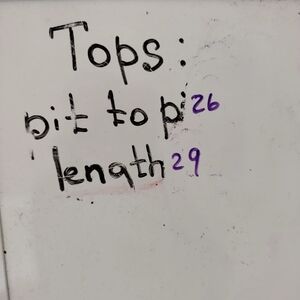 Tops:
pit to pi 26
length 29